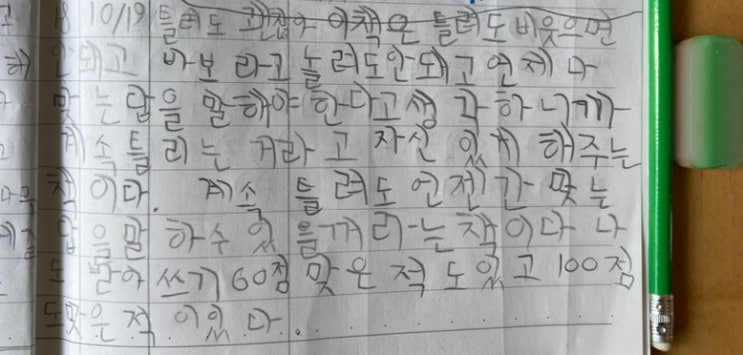 18 10/19 틀려도 괜찮아 이책은 틀려도 비웃으면
안돼고 바보 라고 놀려도안돼고 언제 나
맞는답을 말해야 한다고생 각하니까
계속틀 리는 거라 고 자신 있게 해주는
책 이다. 계속 틀려도 언젠간 맞는
답을말 하수 있 을꺼라는책이다 나
도 받아 쓰기 60점 맞은 적 도있고 100점
도맞은적 이있다.